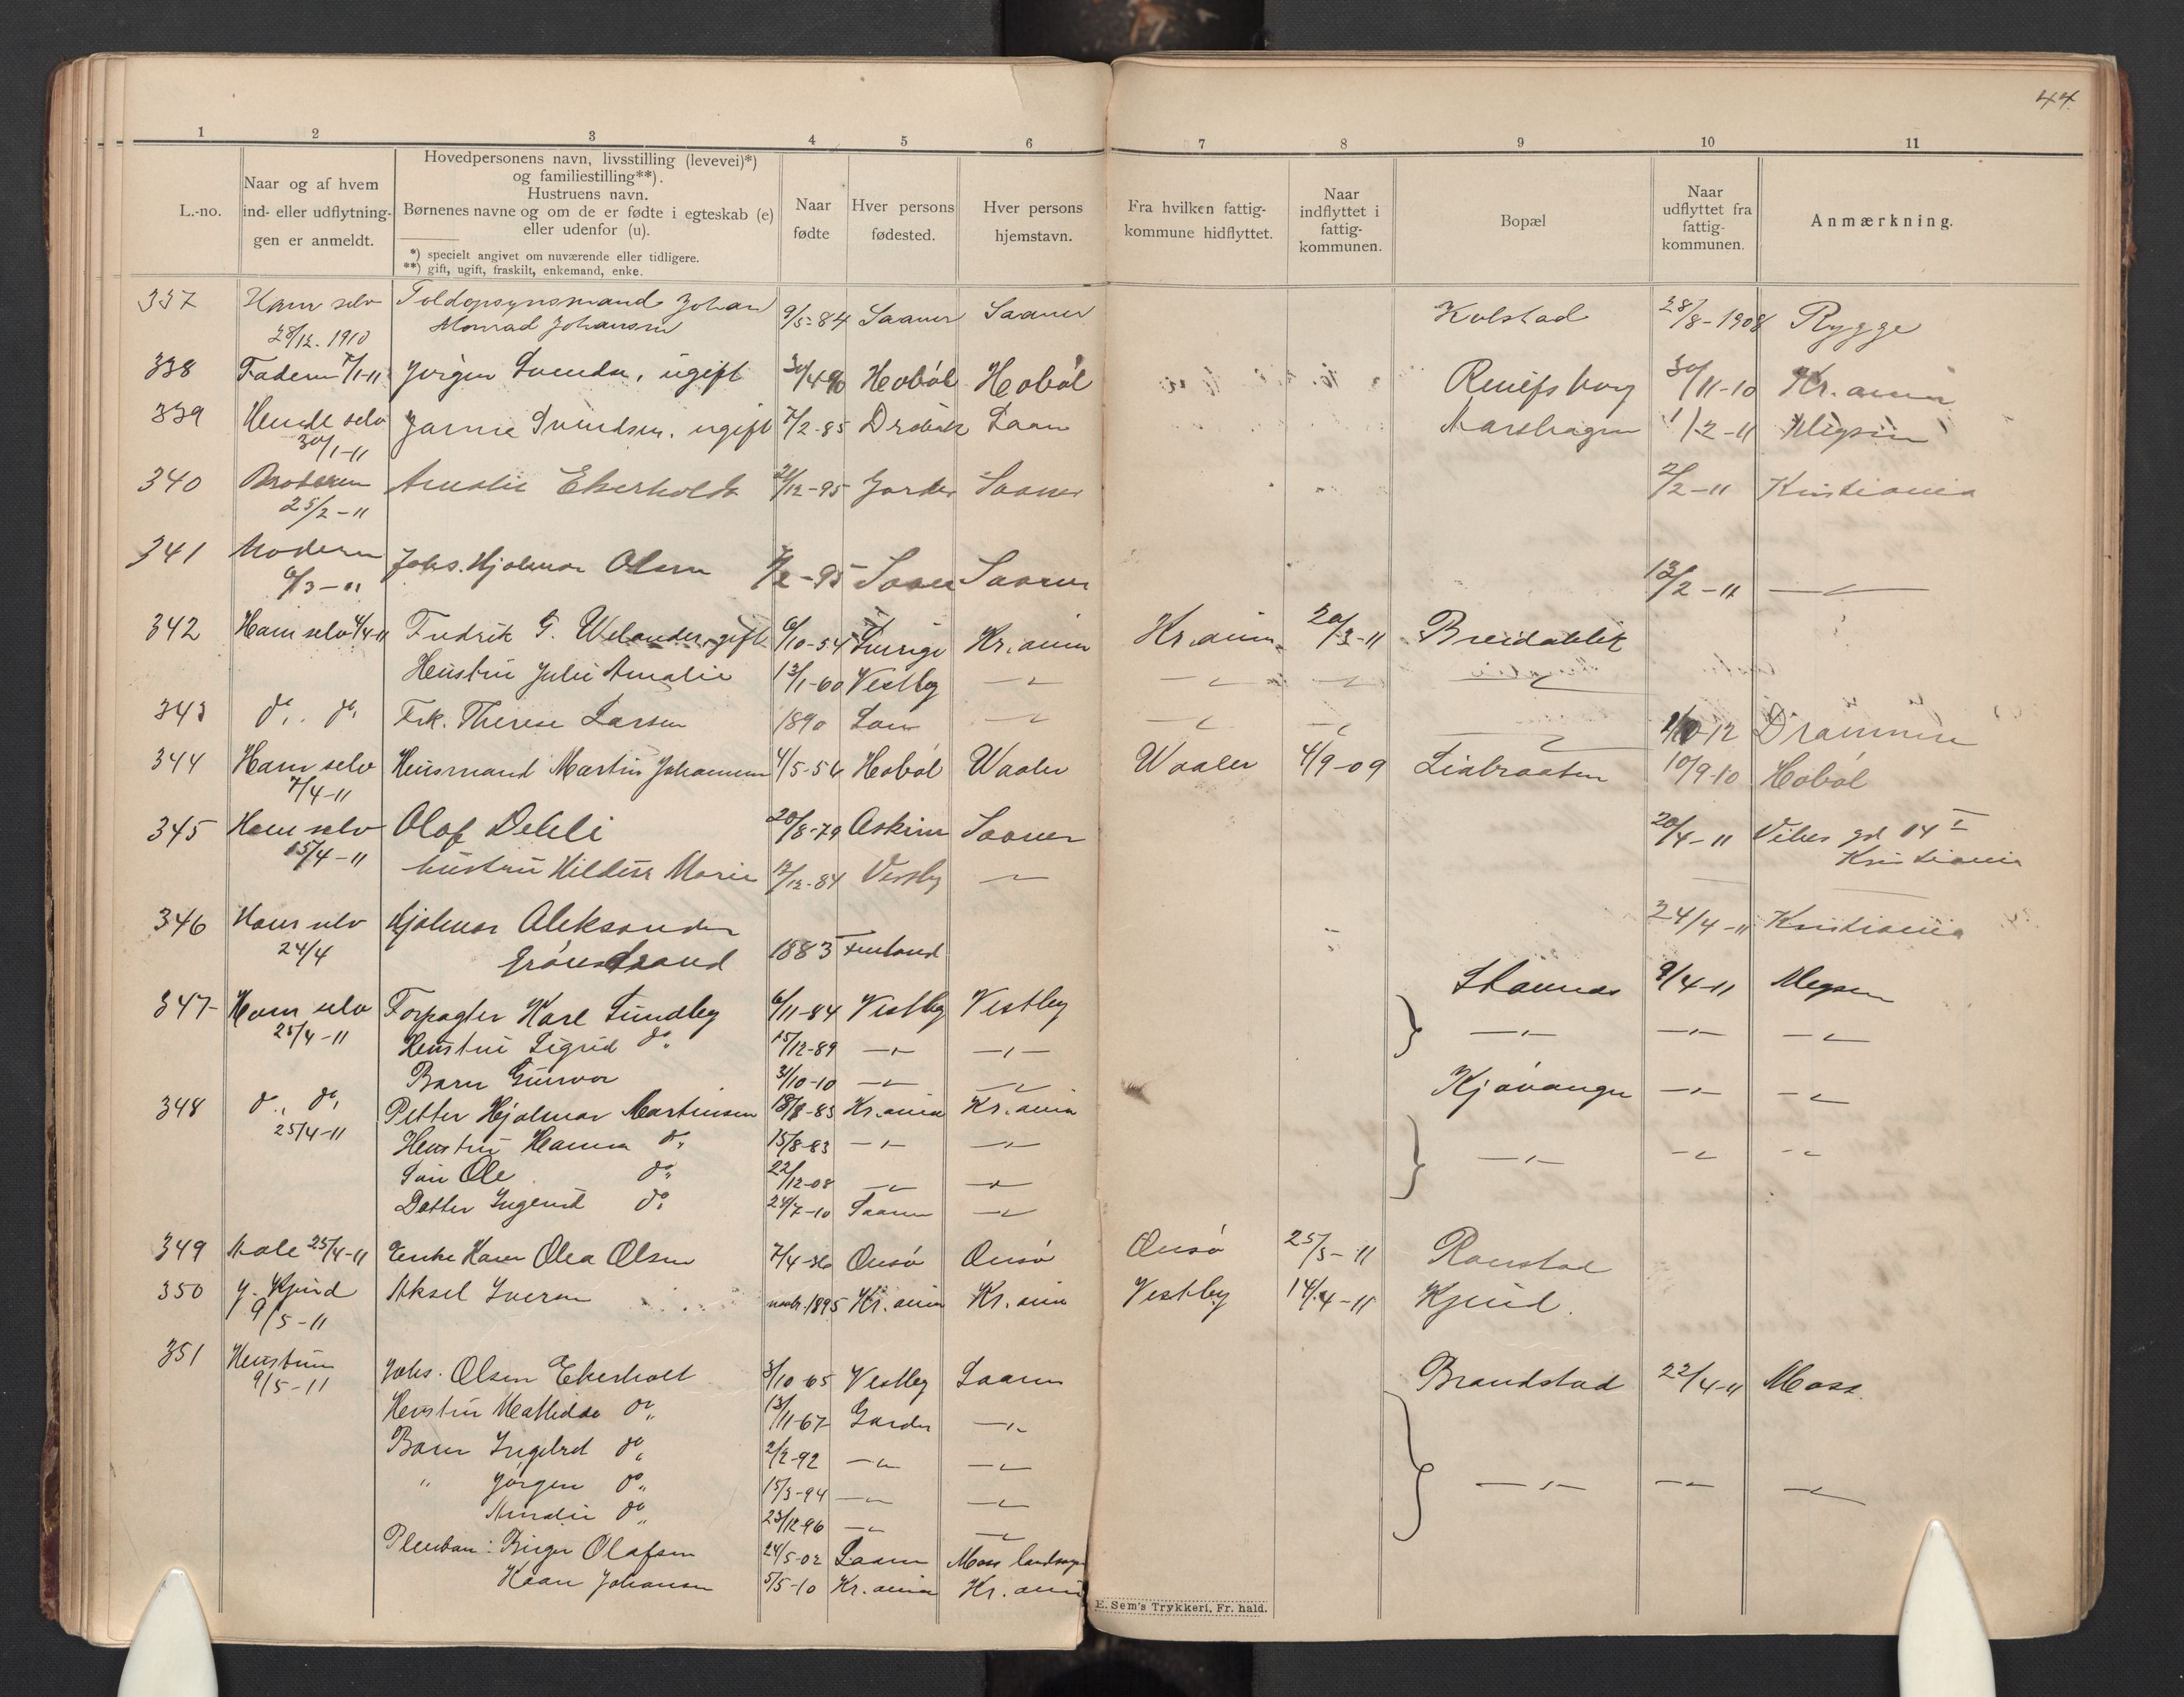 44
1 2 3 4 5 6 7 8 9 10 11
L.-no.
Naar og af hvem
ind- eller udflytnin-
gen er anmeldt.
Hovedpersonens navn, livsstilling (levevei)*)
og familiestilling**).
Hustruens navn.
Børnenes navne og om de er fødte i egteskab (e)
eller udenfor (u).
*) specielt angivet om nuværende eller tidligere.
**) gift, ugift, fraskilt, enkemand, enke.
Naar
fødte
Hver persons
fødested.
Hver persons
hjemstavn.
Fra hvilken fattig-
kommune hidflyttet.
Naar
indflyttet i
fattig-
kommunen.
Bopæl
Naar
udflyttet fra
fattig-
kommunen.
Anmærkning.
337 Ham selv Toldopsynsmand Johan 9/5-84 Saaner Saaner Kolstad 28/8-1908 Rygge
28/12. 1910 Monrad Johansen
338 Faderen 7/1-11 Jørgen Svendsen, ugift 30/4-90 Hobøl Hobøl 30/11-10 Kr.ania
339 Hende selv ugift 7/2-85 Drøbak Saan 1/2-11
30/1-11
340 Broderen Amalie Ekerholdt 21/12-95 Garder Saaner 2/2-11 Kristiania
25/2-11
341 Moderen Johs. Hjalmar Olsen 95 Saaner Saaner 13/2-11 —"—
6/3-11
342 Ham selv 4/4-11 Fredrik G. Welander, gift 6/10-54 Sverige Kr.ania Kr.ania 20/3-11 Breidablik
Hustru Julie Amalie 13/1-60 Vestby —"— —"— —"— —"—
343 do. do. Frk. Therese Larsen 1890 Son —"— —"— —"— —"— 12 Drammen
344 Ham selv Husmand Martin Johannesen 4/5-54 Hobøl Waaler Waaler 4/9-09 Liabraaten 10/9-10 Hobøl
7/4-11
345 Ham selv Olaf Dehli 20/8-79 Askim Saaner 20/4-11 Vibes gd 14 I
15/4-11 Kristiania
hustru Marie 12/12-84 Vestby —"—
346 Ham selv Hjalmar Aleksander 24/4-11 Kristiania
24/4 Grönstrand 1883 Finland
347 Ham selv Forpagter Karl Sundby 6/11-84 Vestby Vestby Stamnes 9/4-11 Mysen
25/4-11 Hustru Sigrid do. 15/12-89 —"— —"— —"— —"— —"—
Barn Gunvor 31/10-10 —"— —"—
348 do. do. Petter Hjalmar Martinsen 18/8-83 Kr.ania Kr.ania Kjøvangen —"— —"—
25/4-11 Hustru Hanna do. 15/8-83 —"— —"— —"— —"— —"—
Søn Ole do. 22/12-08 —"— —"—
Datter Ingerid do. 24/7-10 Saaner —"—
349 25/4-11 Enke Karen Olea Olsen 7/4-36 Onsø Onsø Onsø 25/3-11 Ronstad
350 Kjind Aksel Iversen novbr. 1895 Kr.ania Kr.ania Vestby 14/4-11 Kjind.
9/5-11
351 Hustruen Johs. Olsen Ekerholt 3/10-65 Vestby Saaner Brandstad 22/4-11 Moss
9/5-11
Hustru Mathilde do. 13/11-67 Garder —"—
Barn Ingebret do. 2/2-92 —"— —"—
" Jørgen do. 15/3-94 —"— —"— —"— —"— —"—
Amalie do. 23/12-96 —"— —"—
Pleiebarn: Birger Olafsen 24/5-02 Saaner Moss landsogn
Johansen 5/5-10 Kr.ania Kr.ania
E. Sem's Trykkeri, Fr. hald.